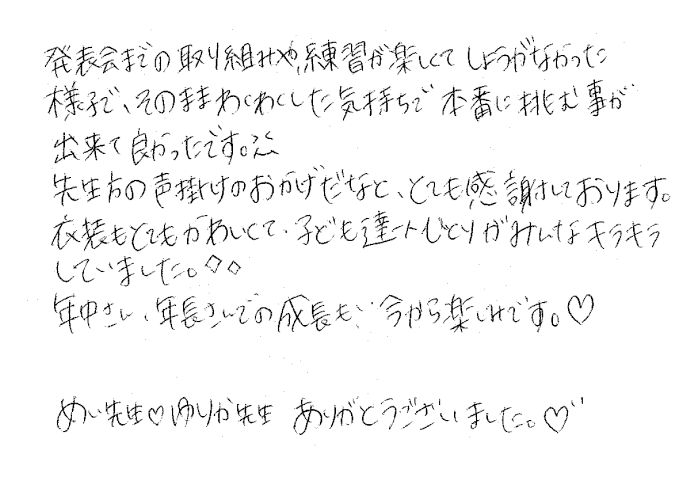 発表会までの取り組みや、練習が楽しくてしょうがなかった
様子で、そのままわくわくした気持ちで本番に挑む事が
出来て良かったです。
先生方の声掛けのおかげだなと、とても感謝しております。
衣装もとてもかわいくて、子ども達一人ひとりがみんなキラキラ
していました。◇◇
年中さん、年長さんでの成長も、今から楽しみです。♡
めい先生♡ゆりか先生 ありがとうございました。♡